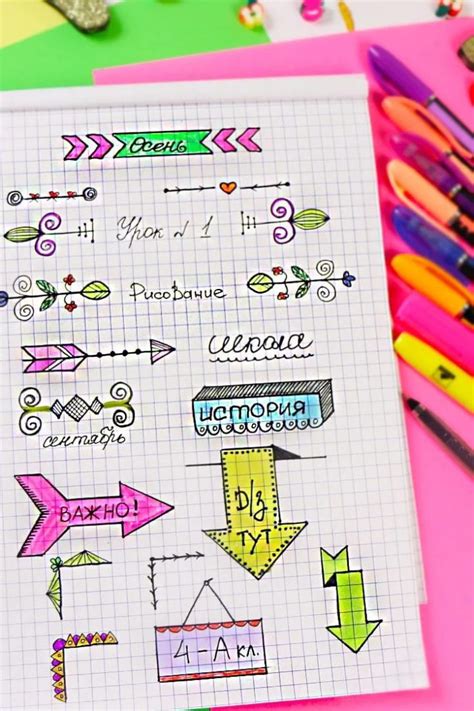 Осень
Урок № 1
Рисование
школа
сентябрь
ИСТОРИЯ
ВАЖНО!
Д/З
ТУТ
4-А кл.